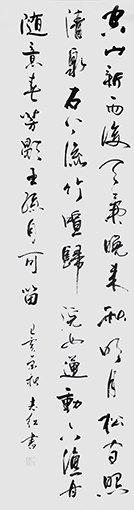 空山新雨後天氣晚來秋明月松間照
清泉石上流竹喧歸浣女蓮動下漁舟
随意春芳歇王孫自可留
己亥秋红書